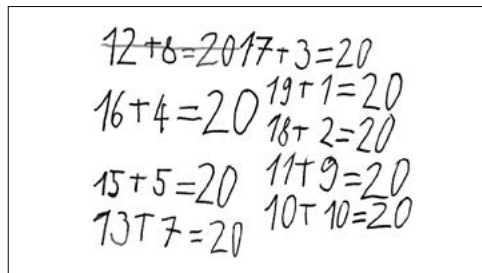 12+8=20 17+3=20
16+4=20 19+1=20
18+2=20
15+5=20 11+9=20
13+7=20 10+10=20